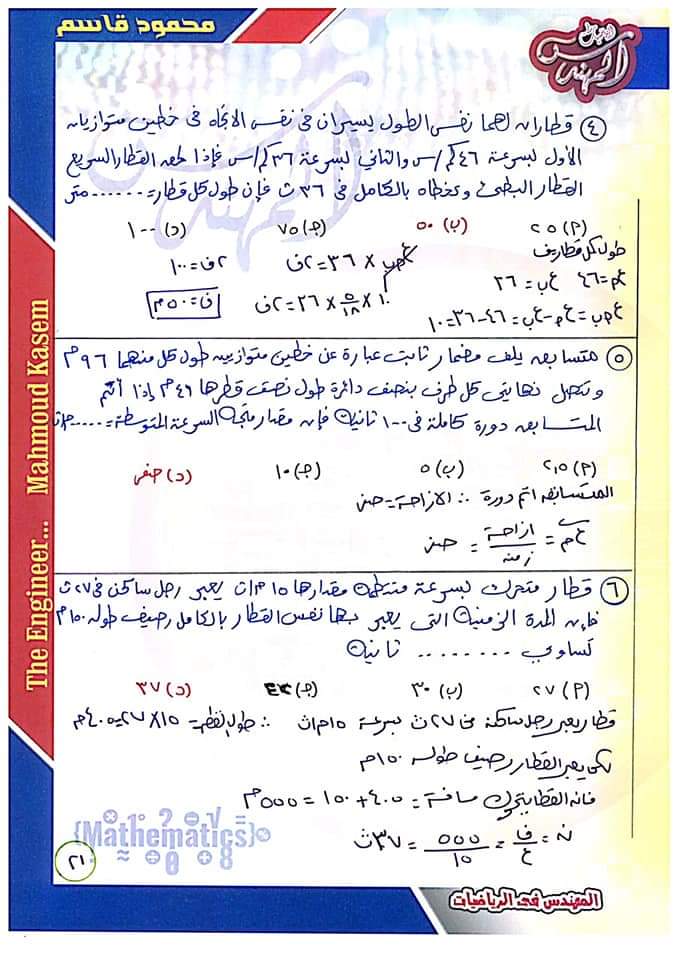 محمود قاسم
المهندس
٤ قطاران لهما نفس الطول يسيران فى نفس الاتجاه فى خطين متوازيان
الأول بسرعة ٤٦ كم/س والثانى بسرعة ٣٦ كم/س فإذا لحق القطار السريع
القطار البطئ وتخطاه بالكامل فى ٣٦ ث فإن طول كل قطار = ....... متر
(أ) ٢٥ (ب) ٥٠ (ج) ٧٥ (د) ١٠٠
طول كل قطار ف
عم = ٤٦ عب = ٣٦
عمب = عم - عب = ٤٦ - ٣٦ = ١٠
عمب × ٣٦ = ٢ف
١٠ × ٥/١٨ × ٣٦ = ٢ف
٢ف = ١٠٠
ف = ٥٠ م
٥ متسابق يلف مضمار ثابت عبارة عن خطين متوازيين طول كل منهما ٩٦ م
وتتصل نهايتى كل طرف بنصف دائرة طول نصف قطرها ٤٩ م إذا أتم
المتسابق دورة كاملة فى ١٠٠ ثانية فإن مقدار متجه السرعة المتوسطة = ...... م/ث
(أ) ٢,٥ (ب) ٥ (ج) ١٠ (د) صفر
المتسابق اتم دورة ∴ الازاحة = صفر
عم = ازاحة / زمن = صفر
٦ قطار متحرك بسرعة منتظمة مقدارها ١٥ م/ث يعبر رجل ساكن فى ٢٧ ث
فإن المدة الزمنية التى يعبر بها نفس القطار بالكامل رصيف طوله ١٥٠ م
تساوي ........ ثانية
(أ) ٢٧ (ب) ٣٠ (ج) ٤٣ (د) ٣٧
قطار يعبر رجل ساكن فى ٢٧ ث بسرعة ١٥ م/ث ∴ طول القطار = ١٥ × ٢٧ = ٤٠٥ م
لكى يعبر القطار رصيف طوله ١٥٠ م
فانه القطار يتحرك مسافة = ٤٠٥ + ١٥٠ = ٥٥٥ م
ن = ف/ع = ٥٥٥/١٥ = ٣٧ ث
The Engineer... Mahmoud Kasem
{Mathematics}
٢١
المهندس فى الرياضيات